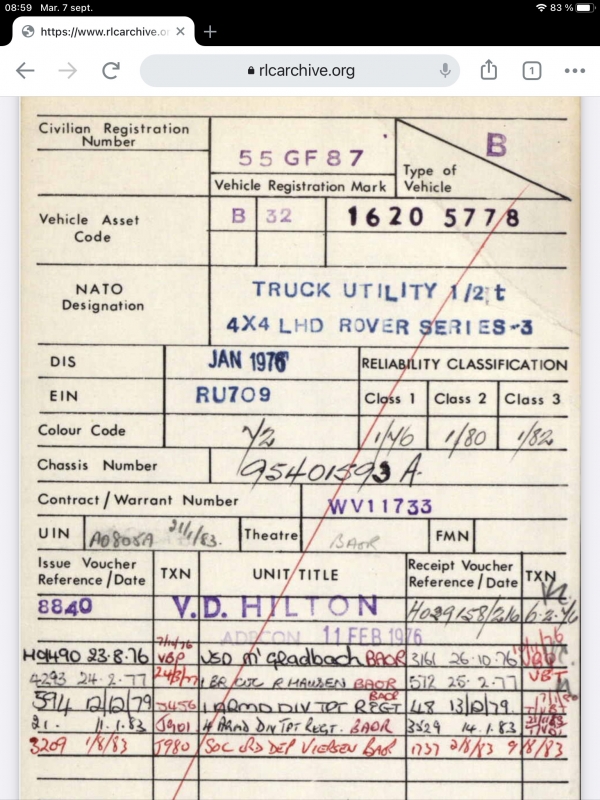 08:59 Mar. 7 sept. 83 %
https://www.rlcarchive.or
rlcarchive.org 1
Civilian Registration Number
55 GF 87
B
Type of Vehicle
Vehicle Registration Mark
Vehicle Asset Code
B 32 1620 5778
NATO Designation
TRUCK UTILITY 1/2 t
4X4 LHD ROVER SERIES-3
DIS JAN 1976 RELIABILITY CLASSIFICATION
EIN RU709 Class 1 Class 2 Class 3
Colour Code 1/76 1/80 1/82
Chassis Number 95401593 A.
Contract/Warrant Number WV11733
UIN A0808A 21/1/83. Theatre BAOR FMN
Issue Voucher Reference/Date TXN UNIT TITLE Receipt Voucher Reference/Date TXN
8840 V.D. HILTON 6.2.76
11 FEB 1976
23.8.76 VBP VSD M'Gladbach BAOR 3161 26.10.76
4293 24.2.77 BAOR 512 25.2.77 VBT
594 12/12/79 J456 1 ARMD DIV TPT REGT BAOR 48 13/12/79.
21. 11.1.83 J901 4 ARMD DIV TPT REGT. BAOR 3529 14.1.83
3209 1/8/83 J980 VIERSEN BAOR 1737 2/8/83 9/8/83